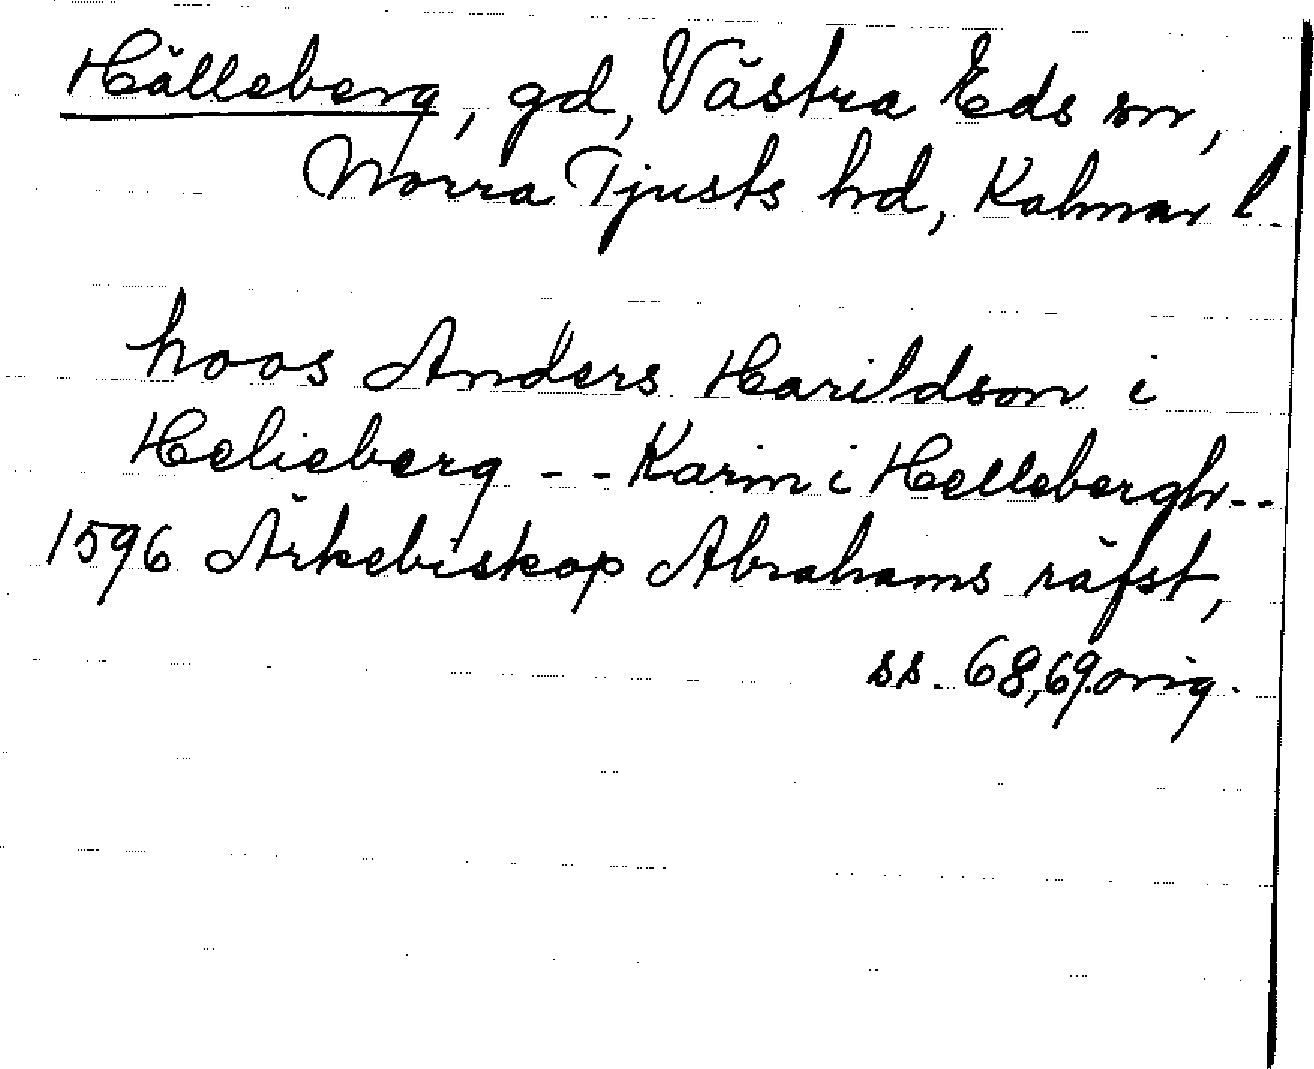 Hälleberg, gd, Västra Eds sn,
Norra Tjusts hd, Kalmar l.
hoos Anders Harildson i
Helieberg -- Karin i Hellebergh--
1596 Ärkebiskop Abrahams räfst,
ss. 68,69.orig.